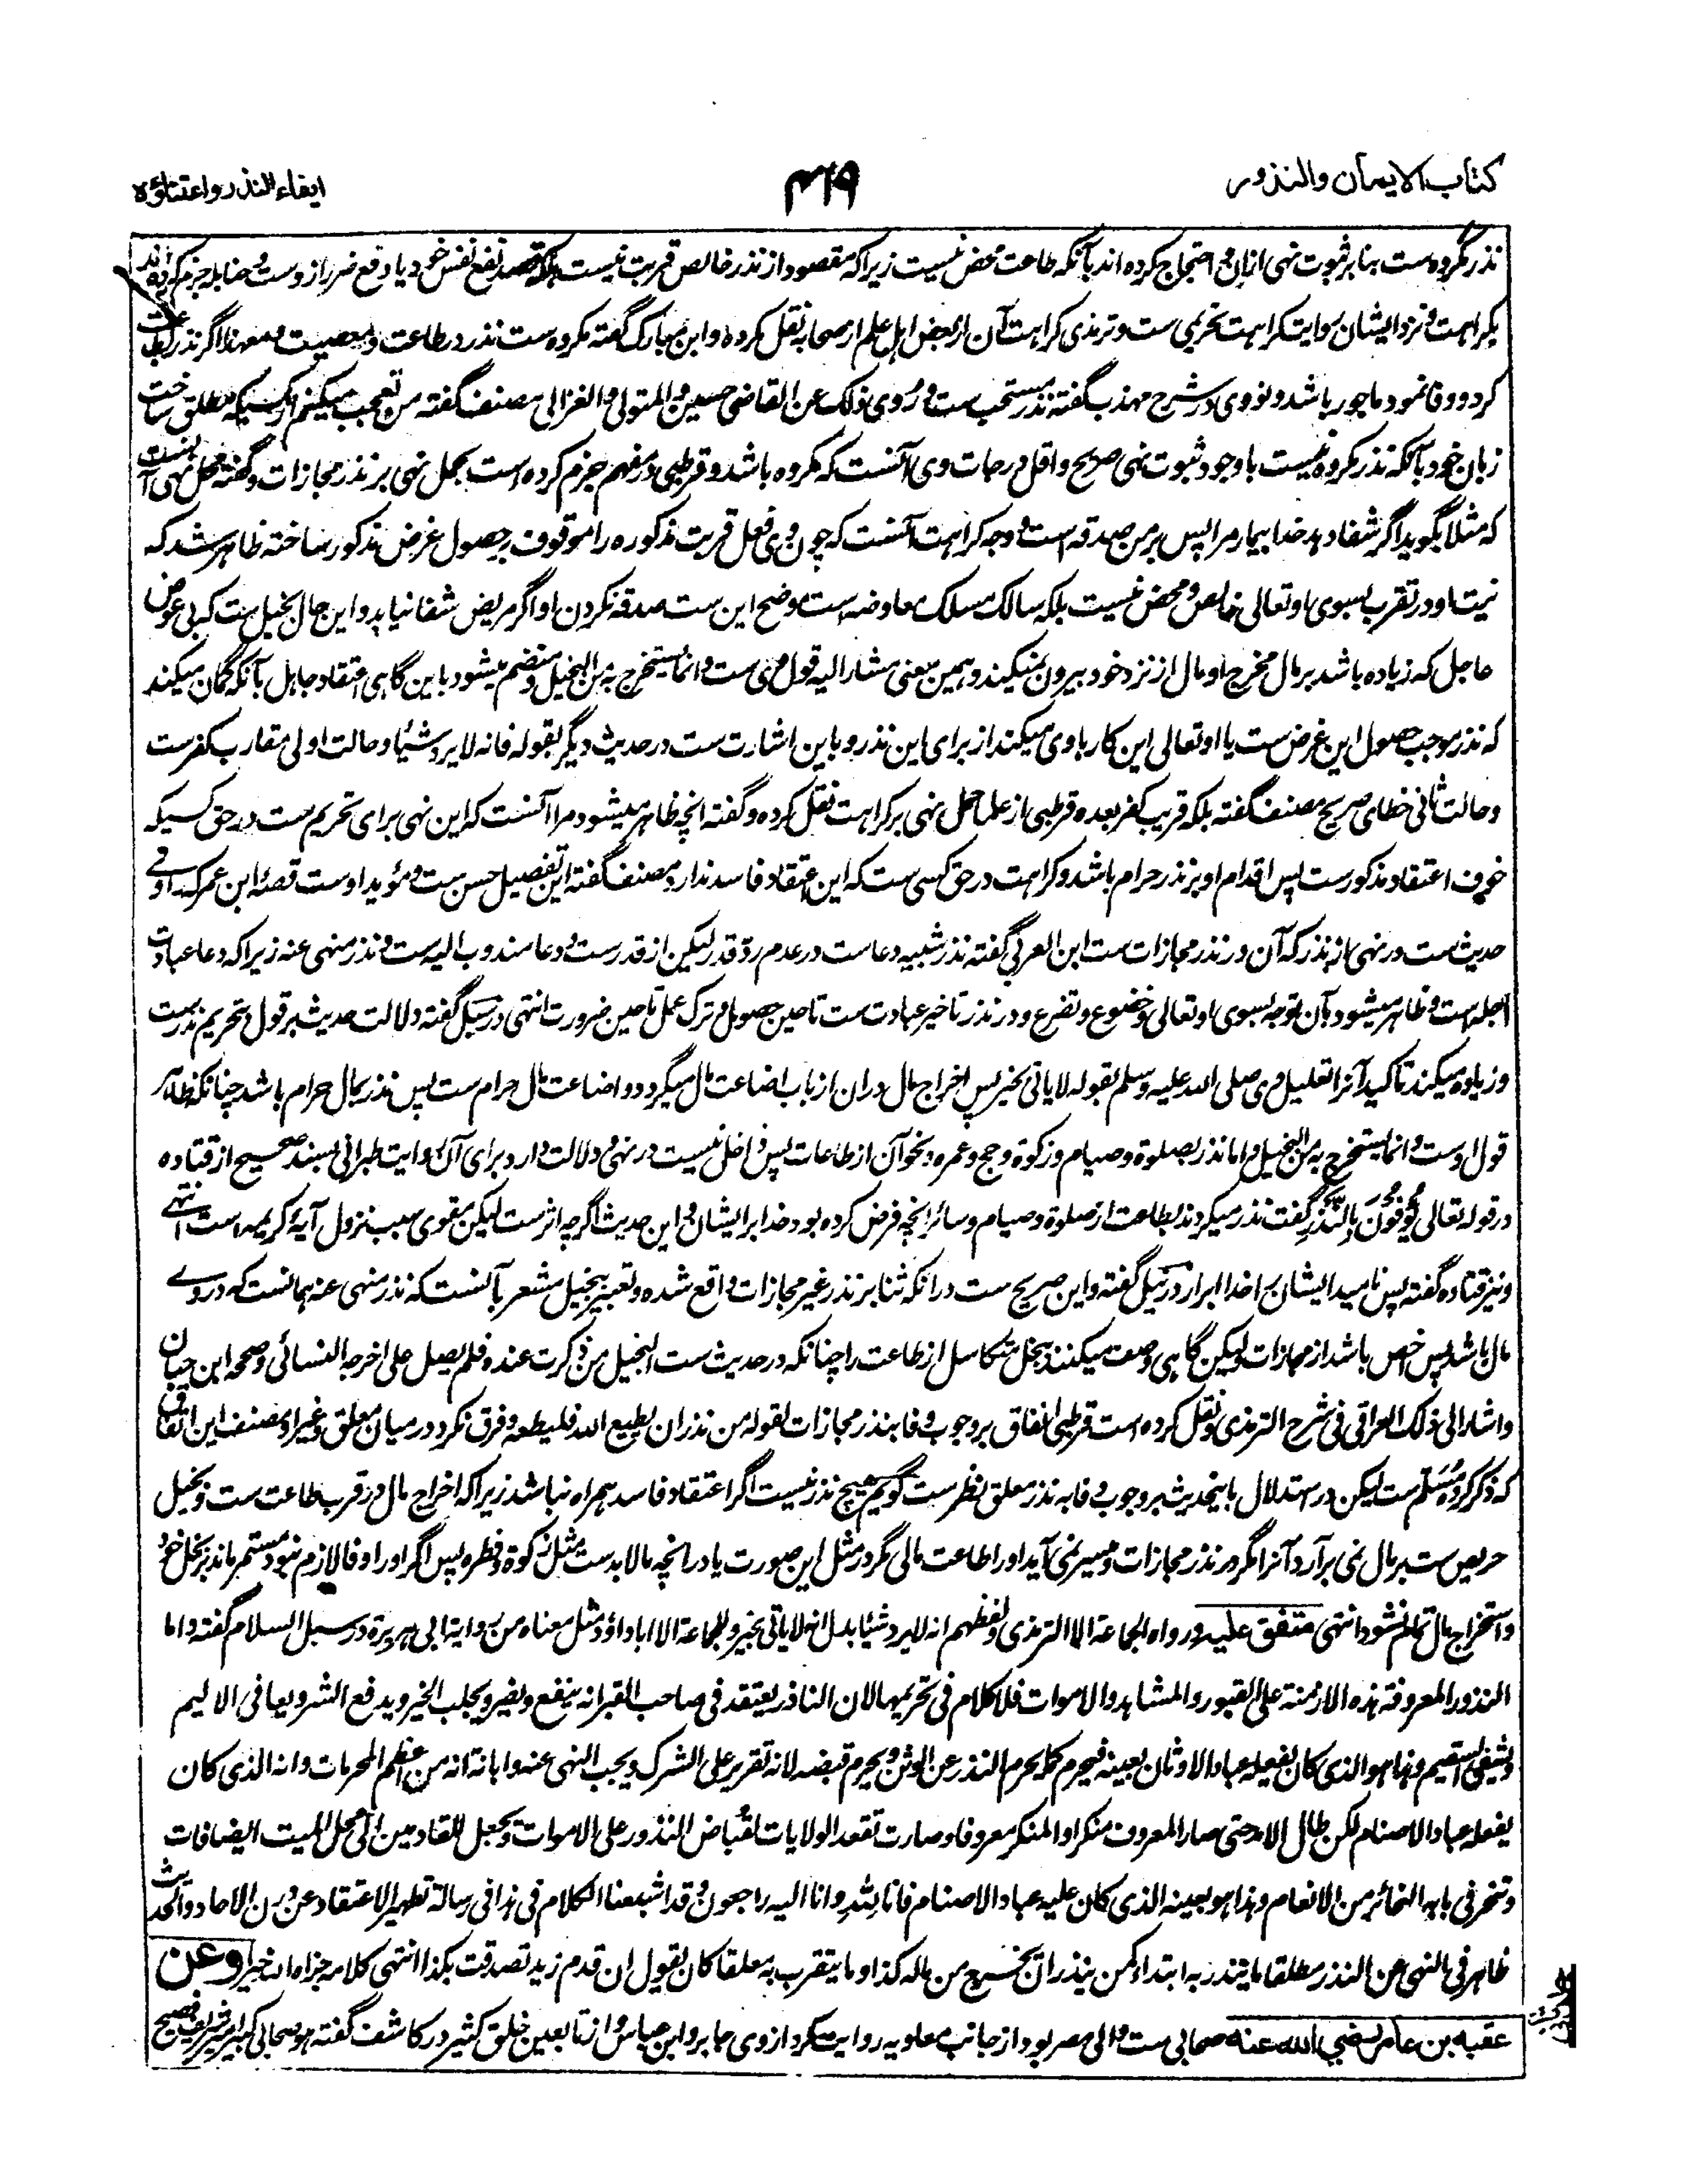 کتاب الایمان والنذور
۴۶۹
ایفاء النذر واعتناؤه
نذر مکروه ست بنا بر ثبوت نهی ازان و احتجاج کرده اند بآنکه طاعت محض نیست زیراکه مقصود از نذر خالص قربت نیست بلکه قصد نفع نفس خود یا دفع ضرر ازوست و حنابله جزم کرده اند
بکراهت و نزد ایشان روایت کراهت تحریمی ست و ترمذی کراهت آن از بعض اهل علم از صحابه نقل کرده و ابن مبارک گفته مکروه ست نذر در طاعت و معصیت ومعهذا اگر نذر بطاعت
کرد و وفا نمود ماجور باشد و نووی در شرح مهذب گفته نذر مستحب ست و روی ذلک عن القاضی حسین والمتولی والغزالی مصنف گفته من تعجب میکنم از کسیکه مطلق ساخت
زبان خود بآنکه نذر مکروه نیست با وجود ثبوت نهی صریح و اقل درجات وی آنست که مکروه باشد و قرطبی در مفهم جزم کرده است بحمل نهی بر نذر مجازات و گفته محل نهی آنست
که مثلا بگوید اگر شفا دهد خدا بیمار مرا پس بر من صدقه است و وجه کراهت آنست که چون وی فعل قربت مذکوره را موقوف بر حصول غرض مذکور ساخته ظاهر شد که
نیت او در تقرب بسوی او تعالی خالص و محض نیست بلکه سالک مسلک معاوضه است موضح این ست صدقه نکردن او اگر مریض شفا نیابد و این حال بخیل ست که بی عوض
عاجل که زیاده باشد بر مال مخرج او مال از نزد خود بیرون نمیکند و همین معنی مشار الیه قول وی ست وانما یستخرج به من البخیل و منضم میشود باین گاهی اعتقاد جاهل بآنکه گمان میکند
که نذر موجب حصول این غرض ست یا او تعالی این کار با وی میکند از برای این نذر و باین اشارت ست در حدیث دیگر بقوله فانه لا یرد شیئا و حالت اولی مقارب کفر ست
و حالت ثانی خطای صریح مصنف گفته بلکه قریب کفر بعده قرطبی از علما حمل نهی بر کراهت نقل کرده و گفته انچه ظاهر میشود مرا آنست که این نهی برای تحریم ست در حق کسیکه
خوف اعتقاد مذکور ست پس اقدام او بر نذر حرام باشد و کراهت در حق کسی ست که این اعتقاد فاسد ندارد مصنف گفته این تفصیل حسن ست و مؤید اوست قصهٔ ابن عمر که راوی
حدیث ست در نهی از نذر که آن در نذر مجازات ست ابن العربی گفته نذر شبیه دعاست در عدم رد قدر لیکن از قدر ست و دعا مندوب الیه ست و نذر منهی عنه زیراکه دعا عبادت
عاجله است و ظاهر میشود بآن توجه بسوی او تعالی و خضوع و تضرع و در نذر تاخیر عبادت ست تا حین حصول و ترک عمل تا حین ضرورت انتهی در سبل گفته دلالت حدیث بر قول بتحریم نذر ست
و زیاده میکند تاکید آنرا تعلیل وی صلی الله علیه وسلم بقوله لا یاتی بخیر پس اخراج مال دران از باب اضاعت مال میگردد و اضاعت مال حرام ست پس نذر بمال حرام باشد چنانکه ظاهر
قول اوست وانما یستخرج به من البخیل و اما نذر بصلوة و صیام و زکوة و حج و عمره و نحو آن از طاعات پس داخل نیست در نهی و دلالت دارد برای آن روایت طبرانی بسند صحیح از قتاده
در قوله تعالی یُوفُونَ بِالنَّذْرِ گفت نذر میکردند بطاعت از صلوة و صیام و سائر انچه فرض کرده بود خدا بر ایشان و این حدیث اگرچه اثر ست لیکن مقوی سبب نزول آیهٔ کریمه است انتهی
و نیز قتاده گفته پس نامید ایشان را خدا ابرار در نیل گفته و این صریح ست در آنکه ثنا بر نذر غیر مجازات واقع شده و تعبیر ببخیل مشعر بآنست که نذر منهی عنه همانست که در وی
مال باشد پس اخص باشد از مجازات ولیکن گاهی وصف میکنند ببخل متکاسل از طاعت را چنانکه در حدیث ست البخیل من ذکرت عنده فلم یصل علی اخرجه النسائی وصححه ابن حبان
واشار الی ذلک العراقی فی شرح الترمذی و نقل کرده است قرطبی اتفاق بر وجوب وفا بنذر مجازات لقوله من نذر ان یطیع الله فلیطعه و فرق نکرد در میان معلق و غیر او مصنف این اتفاق
که ذکر کرده مُسَلَّم ست لیکن در استدلال باین حدیث بر وجوب وفا به نذر معلق نظر ست گویم هیچ نذر نیست اگر اعتقاد فاسد همراه نباشد زیراکه اخراج مال در قرب طاعت ست و بخیل
حریص ست بر مال نمی برآرد آنرا مگر در نذر مجازات و میسر نمی آید او را طاعت مالی مگر در مثل این صورت یا در انچه مالابد ست مثل زکوة و فطره پس اگر او را وفا لازم نبود مستمر ماند بر بخل خود
و استخراج مال تمام نشود انتهی متفق علیه ورواه الجماعة الا الترمذی ولفظهم انه لا یرد شیئا بدل انه لا یاتی بخیر وللجماعة الا ابا داود مثل معناه من روایة ابی هریرة در سبل السلام گفته واما
النذور المعروفة هذه الازمنة علی القبور والمشاهد والاموات فلا کلام فی تحریمها لان الناذر یعتقد فی صاحب القبر انه ینفع ویضر ویجلب الخیر ویدفع الشر ویعافی الالیم
ویشفی السقیم وهذا هو الذی کان یفعله عباد الاوثان بعینه فیحرم کما یحرم النذر عن الوثن ویحرم قبضه لانه تقریر علی الشرک ویجب النهی عنه وابانة انه من اعظم المحرمات وانه الذی کان
یفعله عباد الاصنام لکن طال الامد حتی صار المعروف منکرا والمنکر معروفا وصارت تعقد الولایات لقُباض النذور علی الاموات ویجعل للقادمین الی محل المیت الضیافات
وتنحر فی بابه النحائر من الانعام وهذا هو بعینه الذی کان علیه عباد الاصنام فانا لله وانا الیه راجعون وقد اشبعنا الکلام فی هذا فی رسالة تطهیر الاعتقاد عن درن الالحاد والحدیث
ظاهر فی النهی عن النذر مطلقا ما ینذر به ابتداء کمن ینذر ان یخرج من ماله کذا وما یتقرب به معلقا کان یقول ان قدم زید تصدقت بکذا انتهی کلامه جزاه الله خیرا وعن
عقبه بن عامر رضی الله عنه صحابی ست والی مصر بود از جانب معاویه روایت کرد از وی جابر و ابن عباس و از تابعین خلق کثیر در کاشف گفته هو صحابی کبیر امیر شریف فصیح